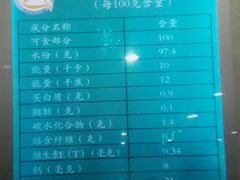 (每100克含量)
成分名称 含量
可食部分 100
水份(克) 97.4
能量(千卡) 10
能量(千焦) 12
蛋白质(克) 0.9
脂肪(克) 0.1
碳水化合物(克) 1.4
膳食纤维(克)
维生素E(T)(毫克) 0.34
钙(毫克) 8
21